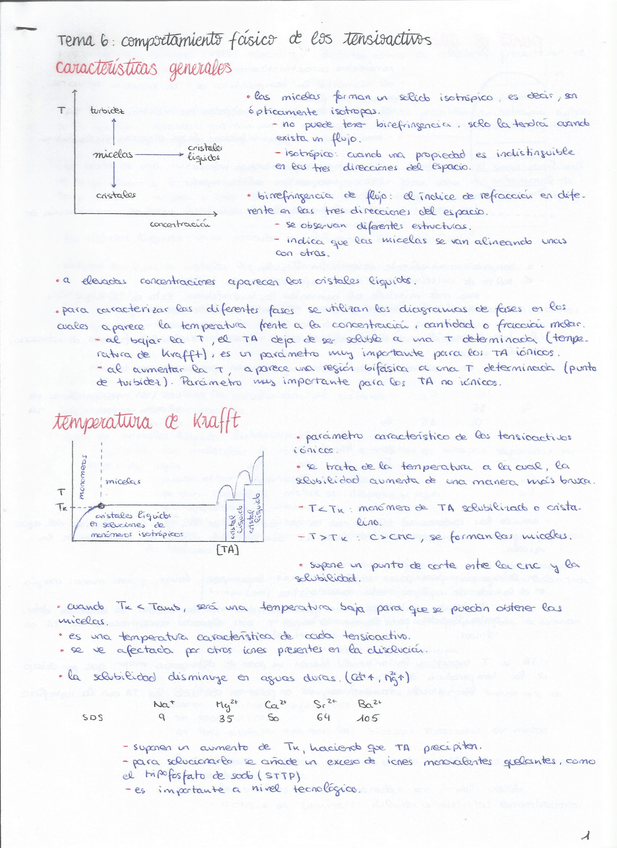 Tema 6: comportamiento fásico de los tensioactivos
características generales
T
turbidez
micelas
cristales
líquidos
cristales
concentración
• las micelas forman un sólido isotrópico, es decir, son
ópticamente isotropas.
- no puede tener birefringencia, solo la tendrá cuando
exista un flujo.
- isotrópico: cuando una propiedad es indistinguible
en las tres direcciones del espacio.
• birrefringencia de flujo: el índice de refracción en dife-
rente en las tres direcciones del espacio.
- se observan diferentes estructuras.
- indica que las micelas se van alineando unas
con otras.
• a elevadas concentraciones aparecen los cristales líquidos.
• para caracterizar las diferentes fases se utilizan los diagramas de fases en los
cuales aparece la temperatura frente a la concentración, cantidad o fracción molar.
- al bajar la T, el TA deja de ser soluble a una T determinada (tempe-
ratura de Krafft), es un parámetro muy importante para los TA iónicos.
- al aumentar la T, aparece una región bifásica a una T determinada (punto
de turbidez). Parámetro muy importante para los TA no iónicos.
temperatura de Krafft
T
Tk
monómeros
micelas
cristales líquidos
en soluciones de
monómeros isotrópicos
cristal
líquido
cristal
líquido
[TA]
• parámetro característico de los tensioactivos
iónicos.
• se trata de la temperatura a la cual, la
solubilidad aumenta de una manera más brusca.
- T<Tk: monómero de TA solubilizado o crista-
lino.
- T>Tk: C>CMC, se forman las micelas.
• supone un punto de corte entre la cmc y la
solubilidad.
• cuando Tk < Tamb, será una temperatura baja para que se puedan obtener las
micelas.
• es una temperatura característica de cada tensioactivo.
• se ve afectada por otros iones presentes en la disolución.
• la solubilidad disminuye en aguas duras. (Ca²⁺↑, Mg²⁺↑)
Na⁺ Mg²⁺ Ca²⁺ Sr²⁺ Ba²⁺
SDS 9 35 50 64 105
- suponen un aumento de Tk, haciendo que TA precipiten.
- para solucionarlo se añade un exceso de iones monovalentes quelantes, como
el tripofosfato de sodio (STTP)
- es importante a nivel tecnológico.
1